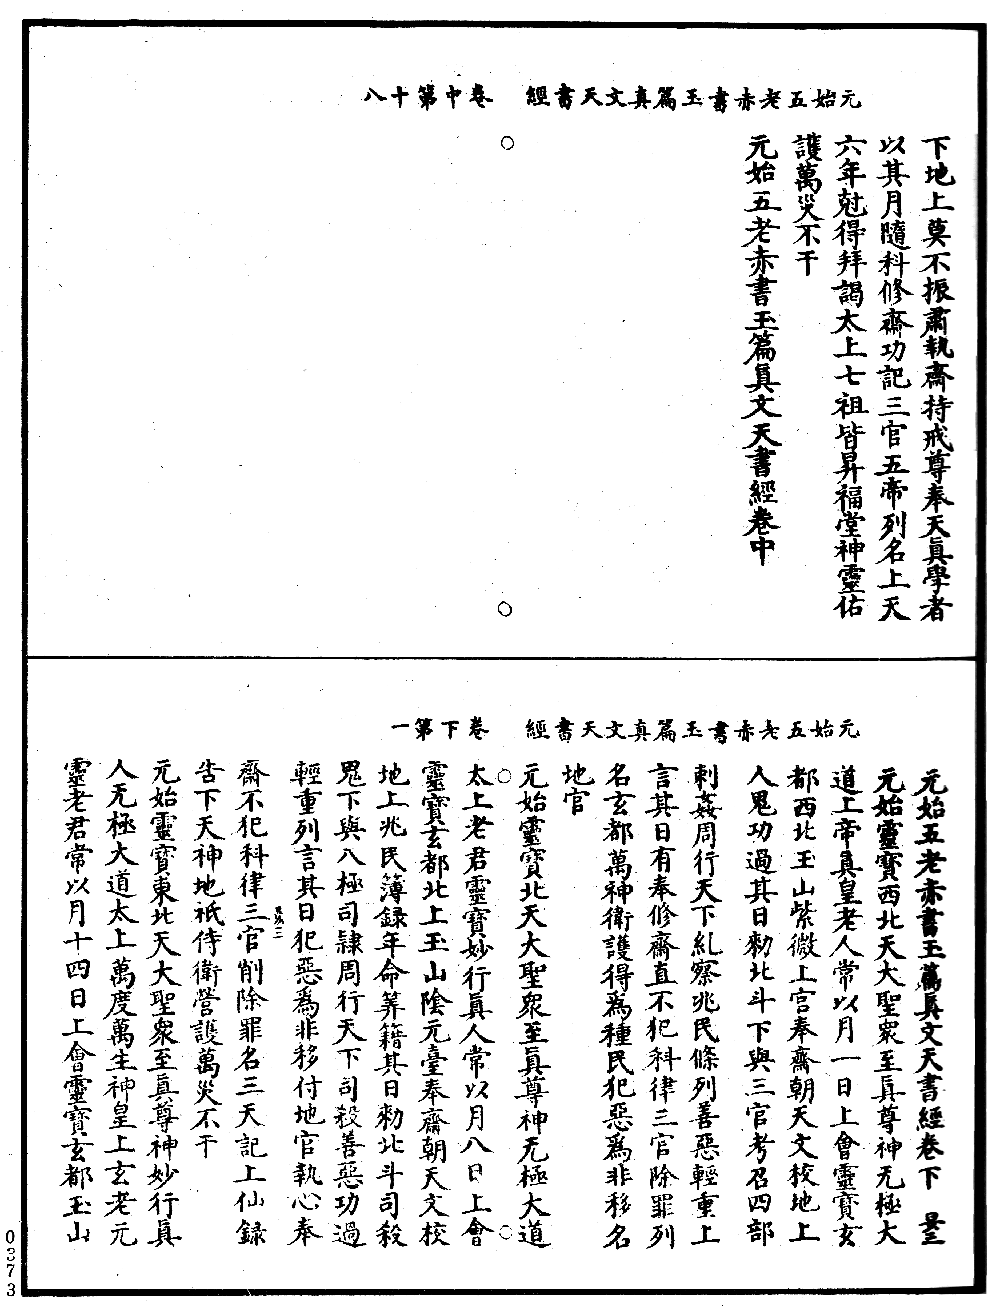 元始五老赤書玉篇真文天書經　卷中第十八
下地上莫不振肅執齋持戒尊奉天真學者
以其月隨科修齋功記三官五帝列名上天
六年尅得拜謁太上七祖皆昇福堂神靈佑
護萬災不干
元始五老赤書玉篇真文天書經卷中
元始五老赤書玉篇真文天書經　卷下第一
元始五老赤書玉篇真文天書經卷下
元始靈寶西北天大聖眾至真尊神无極大
道上帝真皇老人常以月一日上會靈寶玄
都西北玉山紫微上宮奉齋朝天文校地上
人鬼功過其日勑北斗下與三官考召四部
刺姦周行天下糺察兆民條列善惡輕重上
言其日有奉修齋直不犯科律三官除罪列
名玄都萬神衛護得為種民犯惡為非移名
地官
元始靈寶北天大聖眾至真尊神无極大道
太上老君靈寶妙行真人常以月八日上會
靈寶玄都北上玉山陰元臺奉齋朝天文校
地上兆民簿錄年命筭籍其日勑北斗司殺
鬼下與八極司隸周行天下司殺善惡功過
輕重列言其日犯惡為非移付地官執心奉
齋不犯科律三官削除罪名三天記上仙錄
告下天神地祇侍衛營護萬災不干
元始靈寶東北天大聖眾至真尊神妙行真
人无極大道太上萬度萬生神皇上玄老元
靈老君常以月十四日上會靈寶玄都玉山
0373